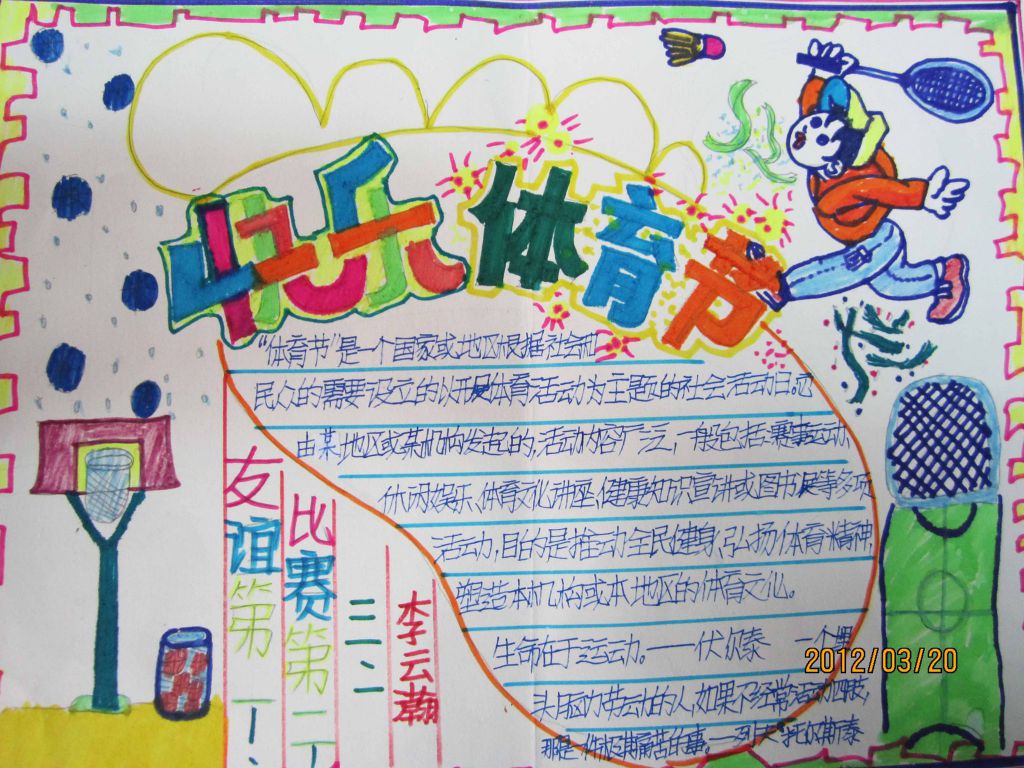 快乐体育节
"体育节"是一个国家或地区根据社会和
民众的需要设立的以开展体育活动为主题的社会活动日。也
由某地区或某机构发起的,活动内容广泛,一般包括:赛事运动、
休闲娱乐、体育文化讲座、健康知识宣讲或图书展等多项
活动,目的是推动全民健身、弘扬体育精神,
塑造本机构或本地区的体育文化。
生命在于运动。——伏尔泰 一个埋
头脑力劳动的人,如果不经常活动四肢,
那是一件极其痛苦的事。——列夫·托尔斯泰
友谊第一、
比赛第二
三二、
李云翰
2012/03/20